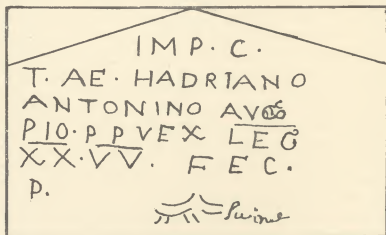 IMP. C.
T. AE. HADRIANO
ANTONINO AVG
PIO. P P VEX LEG
XX. VV. FEC.
P.
Swine